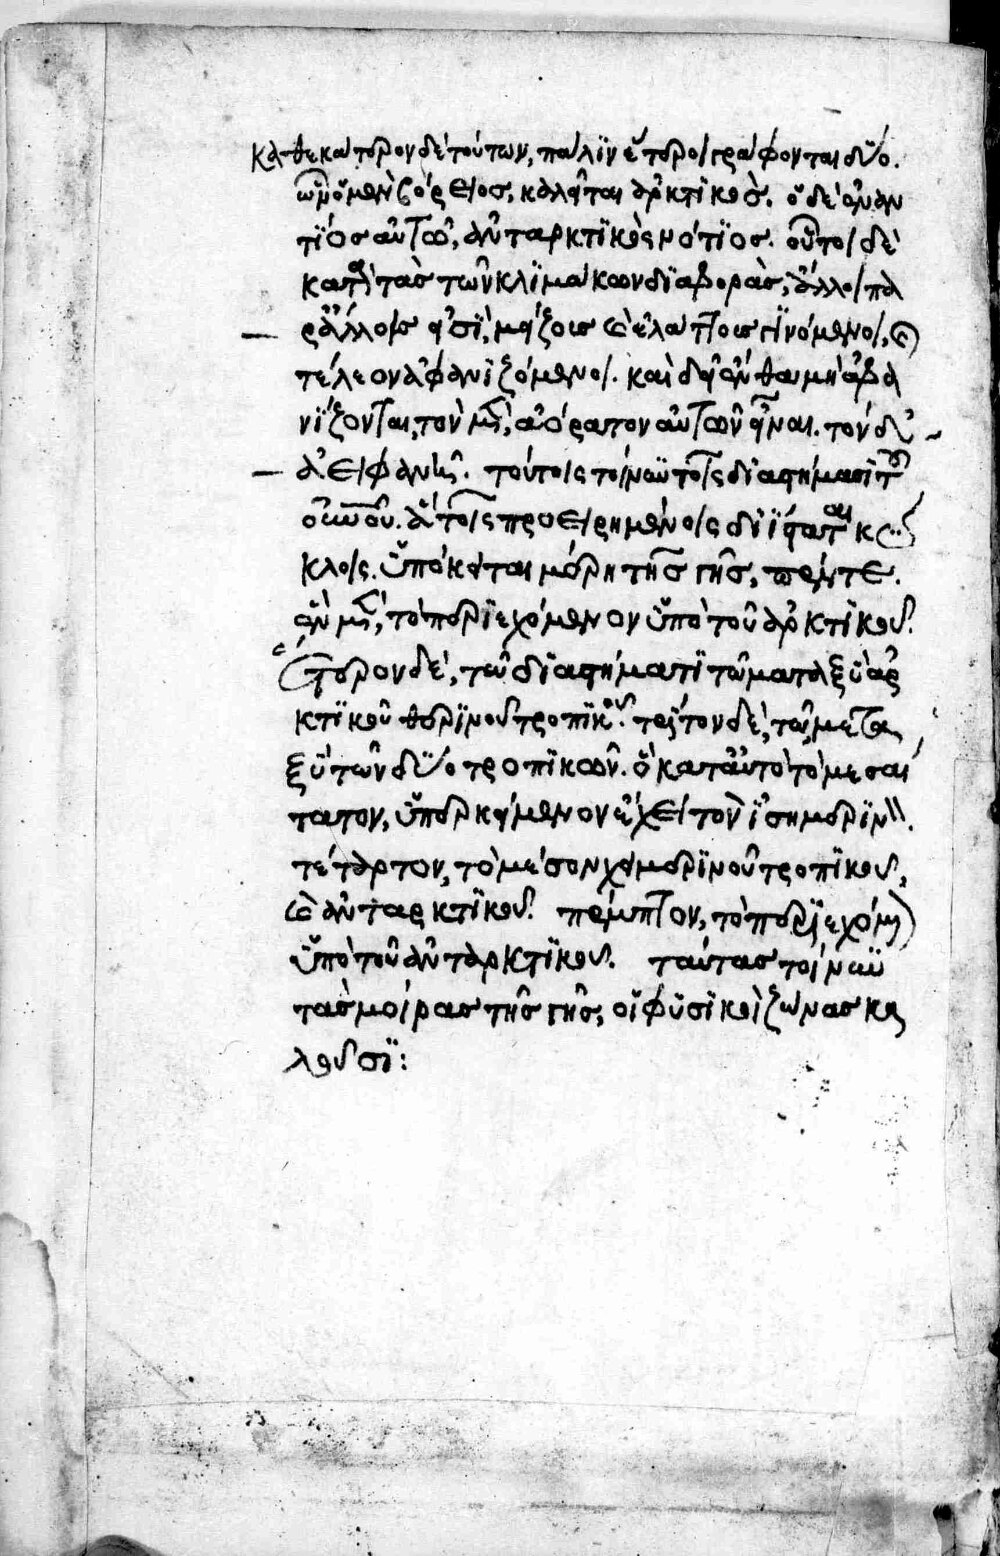 καθ' ἑκάτερον δὲ τούτων, πάλιν ἕτεροι γράφονται δύο.
ὧν ὁ μὲν βόρειος, καλεῖται ἀρκτικός. ὁ δὲ ἐναν
τίος αὐτῶ, ἀνταρκτικὸς νότιος. οὗτοι δὲ
κατὰ τὰς τῶν κλιμάκων διαφορὰς, ἄλλοι πα
ρ' ἄλλοις εἰσὶ, μείζους καὶ ἐλάττους γινόμενοι, καὶ
τέλεον ἀφανιζόμενοι. καὶ δὴ ἔνθα μὴ ἀφα
νίζονται, τὸν μὲν, ἀόρατον αὐτῶν εἶναι. τὸν δὲ
ἀειφανῆ. τούτοις τοίνυν τοῖς διαστήμασι τοῦ
οὐνοῦ. ἃ τοῖς προειρημένοις διίσταται κύ
κλοις. ὑπόκειται μέρη τῆς γῆς, πέντε.
ἓν μὲν, τὸ περιεχόμενον ὑπὸ τοῦ ἀρκτικοῦ.
ἕτερον δὲ, τῶ διαστήματι τῶ μεταξὺ ἀρ
κτικοῦ θερινοῦ τροπικοῦ. τρίτον δὲ, τῶ μετα
ξὺ τῶν δύο τροπικῶν. ὃ κατ' αὐτὸ τὸ μεσαί
τατον, ὑπερκείμενον ἔχει τὸν ἰσημερινὸν.
τέταρτον, τὸ μέσον χειμερινοῦ τροπικοῦ,
καὶ ἀνταρκτικοῦ. πέμπτον, τὸ περιεχόμενον
ὑπὸ τοῦ ἀνταρκτικοῦ. ταύτας τοίνυν
τὰς μοίρας τῆς γῆς, οἱ φυσικοὶ ζώνας κα
λοῦσι: